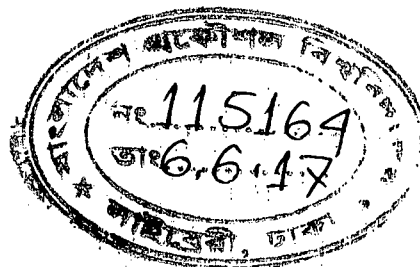 বাংলাদেশ প্রকৌশল বিশ্ববিদ্যালয়
নং 115164
তাং 6.6.17
★ লাইব্রেরী, ঢাকা